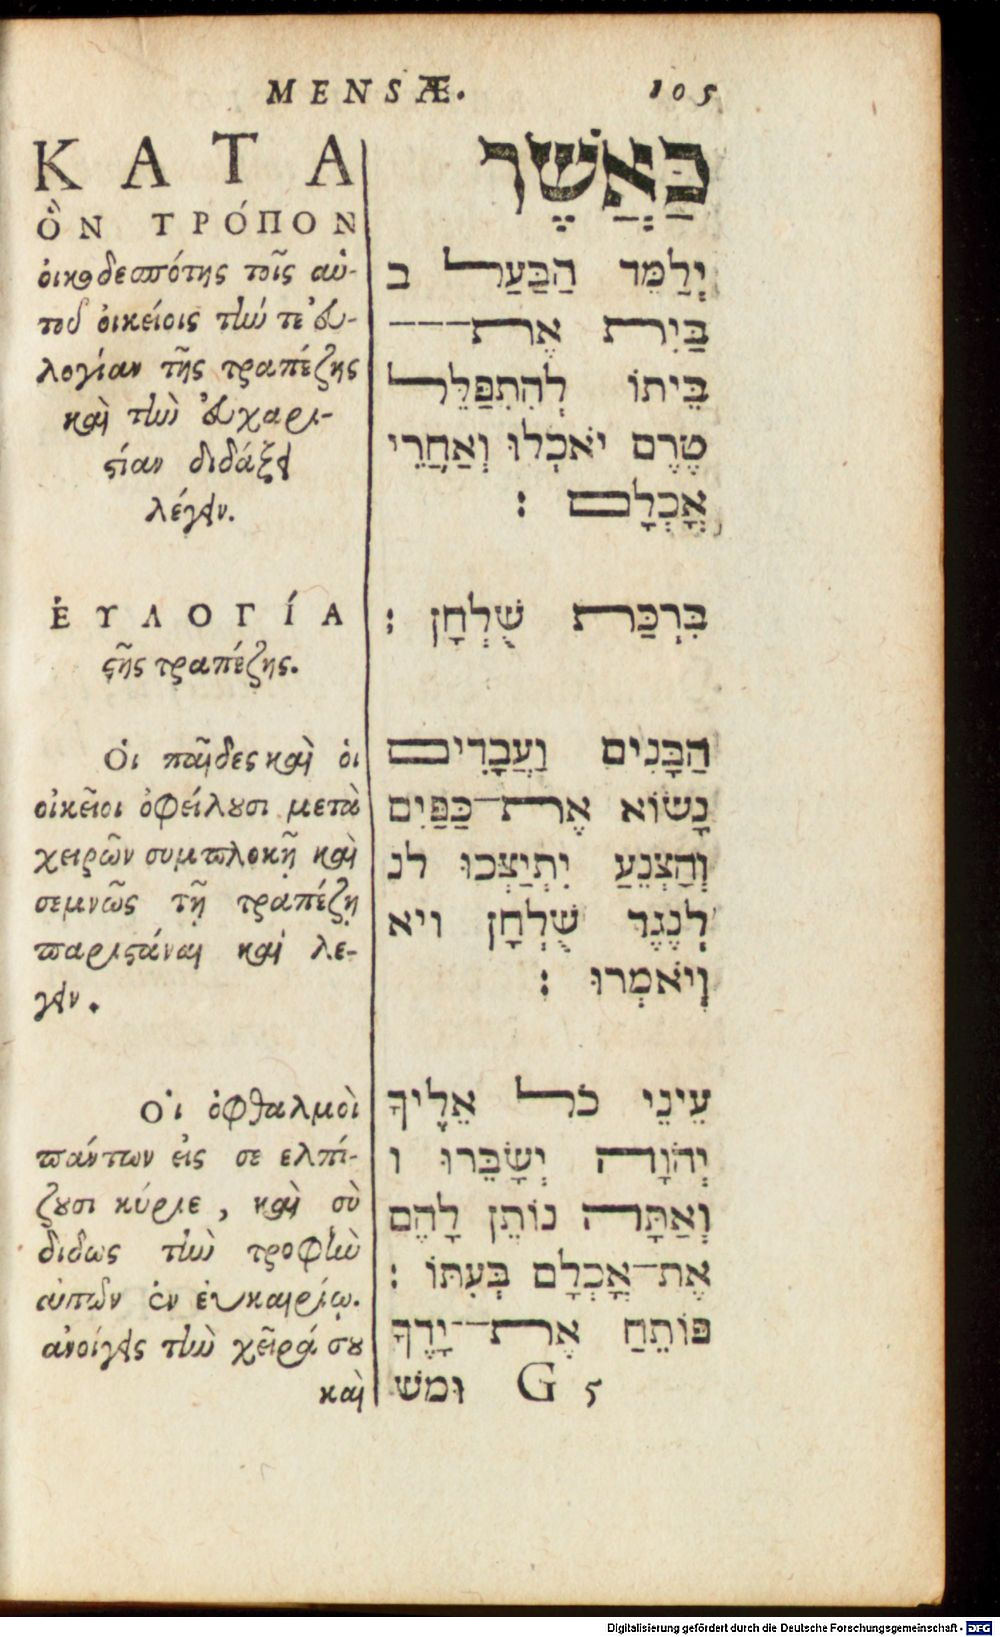 MENSÆ. 105
ΚΑΤΑ
ὋΝ ΤΡΌΠΟΝ
ὁικοδεσπότης τοῖς αὑ-
τοῦ ὀικείοις τὴν τε ἐυ-
λογίαν τῆς τραπέζης
καὶ τὴν ἐυχαρι-
ςίαν διδάξει
λέγειν.
ἘΥΛΟΓΊΑ
ςῆς τραπέζης.
Ὁι παῖδες καὶ ὁι
οἰκεῖοι ὀφείλουσι μετὰ
χειρῶν συμπλοκῇ καὶ
σεμνῶς τῇ τραπέζῃ
παριςάναι καὶ λέ-
γειν.
Ὁι ὀφθαλμοὶ
πάντων εἰς σε ελπί-
ζουσι κύριε, καὶ σὺ
διδως τὴν τροφὴν
ἀυτῶν ἐν ἐυκαιρίῳ.
ἀνοίγεις τὴν χεῖρά σου
καὶ
כַּאֲשֶׁר
יְלַמֵּד הַבַּעַל ב
בַּיִת אֶת־
בֵּיתוֹ לְהִתְפַּלֵּל
טֶרֶם יֹאכְלוּ וְאַחֲרֵי
אָכְלָם :
בִּרְכַּת שֻׁלְחָן :
הַבָּנִים וַעֲבָרִים
נָשׂוֹא אֶת־כַּפַּיִם
וְהַצְנֵעַ יִתְיַצְּבוּ לנ
לְנֶגֶד שֻׁלְחָן ויא
וְיֹאמְרוּ :
עֵינֵי כֹל אֵלֶיךָ
יְהֹוָה יְשָׂבֵּרוּ ו
וְאַתָּה נוֹתֵן לָהֶם
אֶת־אָכְלָם בְּעִתּוֹ :
פּוֹתֵחַ אֶת־יָדֶךָ
G 5 ומש
Digitalisierung gefördert durch die Deutsche Forschungsgemeinschaft - DFG